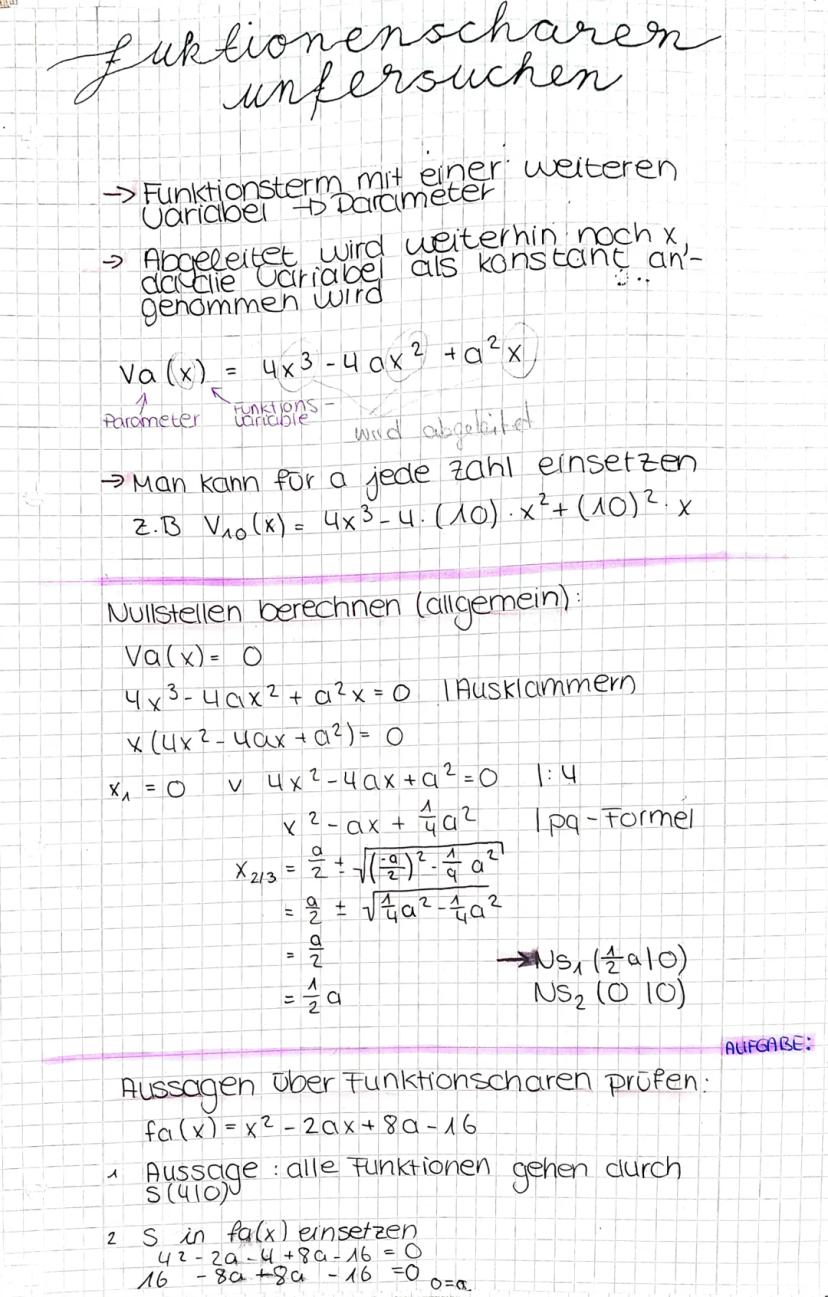 Fuktionenscharen
untersuchen
→ Funktionsterm mit einer weiteren
Variabel → Parameter
→ Abgeleitet wird weiterhin noch x,
da die Variabel als konstant an-
genommen wird
Va(x) = 4x³ - 4ax² + a²x
Parameter Funktions-
variable
wird abgeleitet
→ Man kann für a jede Zahl einsetzen
z.B V₁₀(x) = 4x³ - 4·(10)·x² + (10)²·x
Nullstellen berechnen (allgemein):
Va(x) = 0
4x³ - 4ax² + a²x = 0 | Ausklammern
x(4x² - 4ax + a²) = 0
x₁ = 0 v 4x² - 4ax + a² = 0 |: 4
x² - ax + 1/4 a² | pq-Formel
x₂/₃ = a/2 ± √((-a/2)² - 1/4 a²)
= a/2 ± √(1/4 a² - 1/4 a²)
= a/2
= 1/2 a
→ NS₁ (1/2 a|0)
NS₂ (0|0)
AUFGABE:
Aussagen über Funktionscharen prüfen:
fa(x) = x² - 2ax + 8a - 16
1 Aussage: alle Funktionen gehen durch
S(4|0)
2 S in fa(x) einsetzen
4² - 2a - 4 + 8a - 16 = 0
16 - 8a + 8a - 16 = 0 0=a